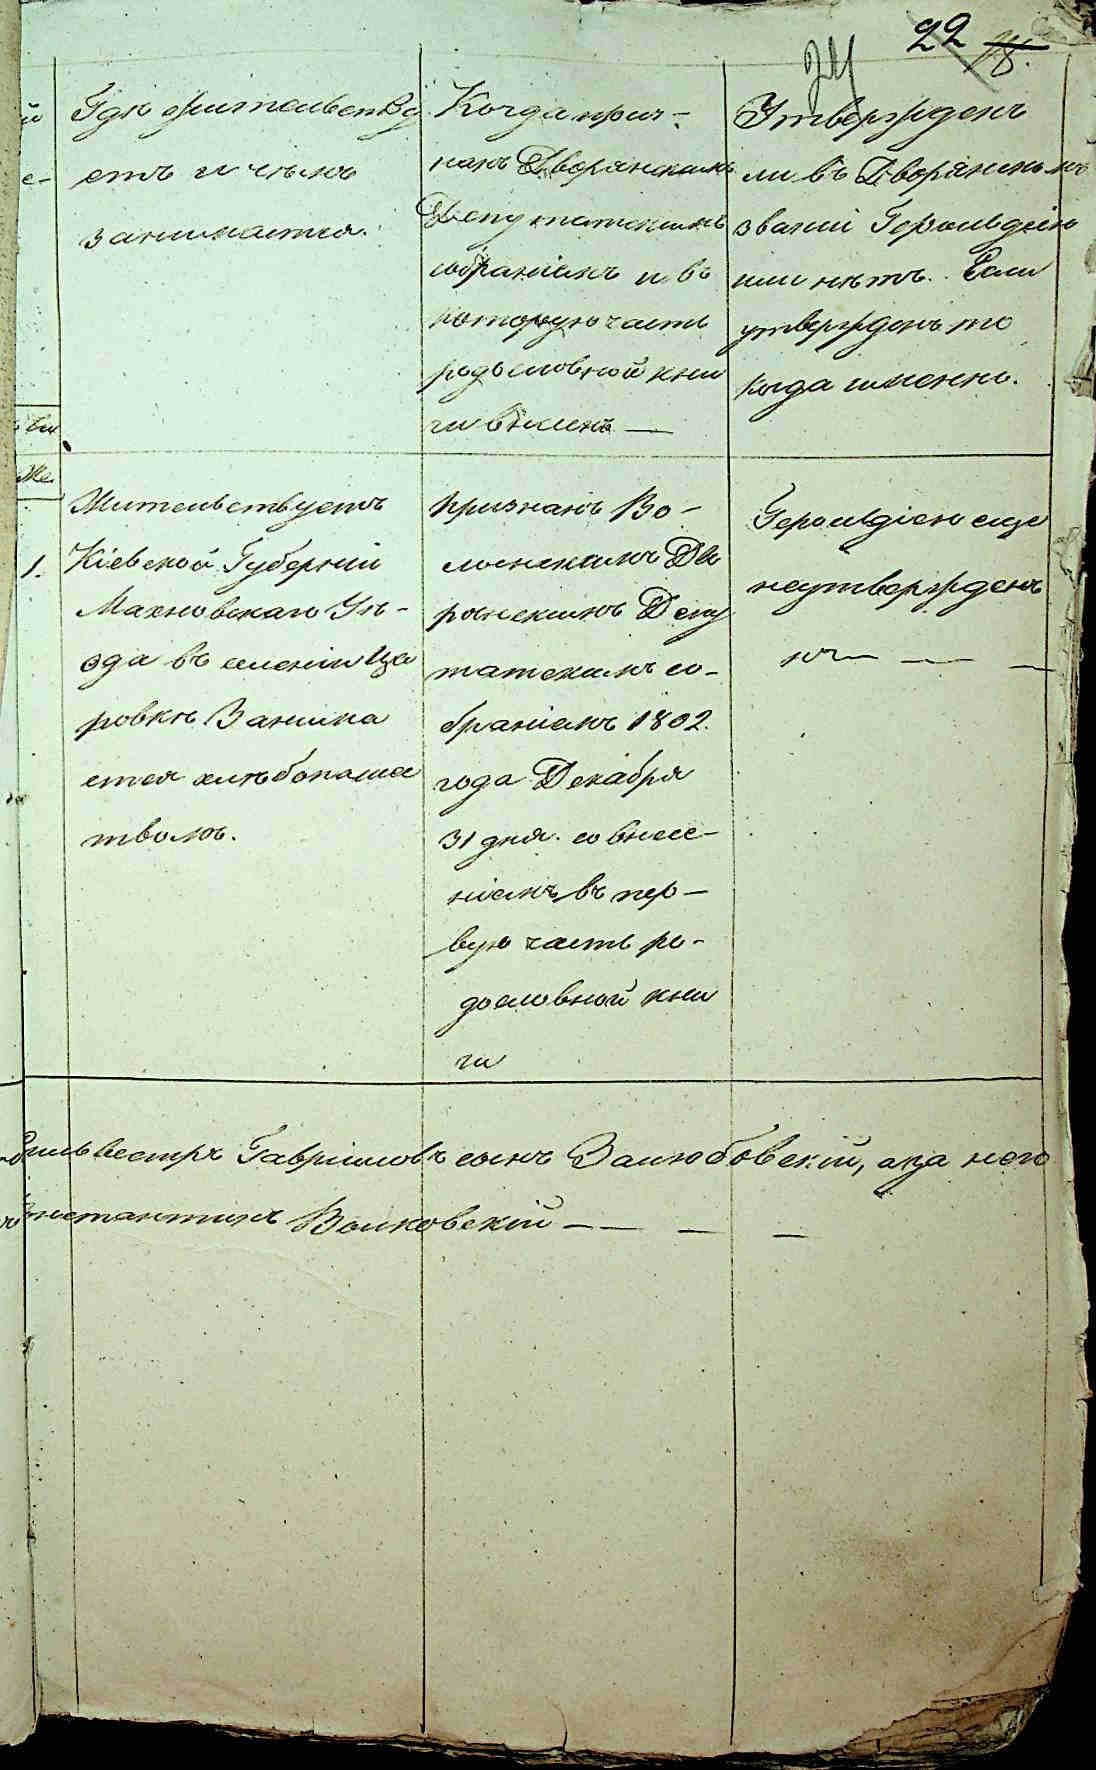 22 18.
24
Гдѣ жительству
етъ и чѣмъ
занимается.
Когда приз-
нанъ Дворянскимъ
Депутатскимъ
собраніемъ и въ
которую часть
родословной кни
ги внесенъ —
Утвержденъ
ли въ Дворянскомъ
званіи Герольдіею
или нѣтъ. Если
утвержденъ то
когда именно.
1.
Жительствуетъ
Кіевской Губерніи
Махновскаго Уѣ-
зда въ селеніи
ровкѣ Занима
ется хлѣбопаше
твомъ.
признанъ Во-
лынскимъ Дво
рянскимъ Депу
татскимъ со-
браніемъ 1802
года Декабря
31 дня. со внесе-
ніемъ въ пер-
вую часть ро-
дословной кни
ги
Герольдіею еще
неутвержденъ
Сильвестръ Гавріиловъ сынъ Залюбовскій, а за него
Константинъ Волковскій — — — —